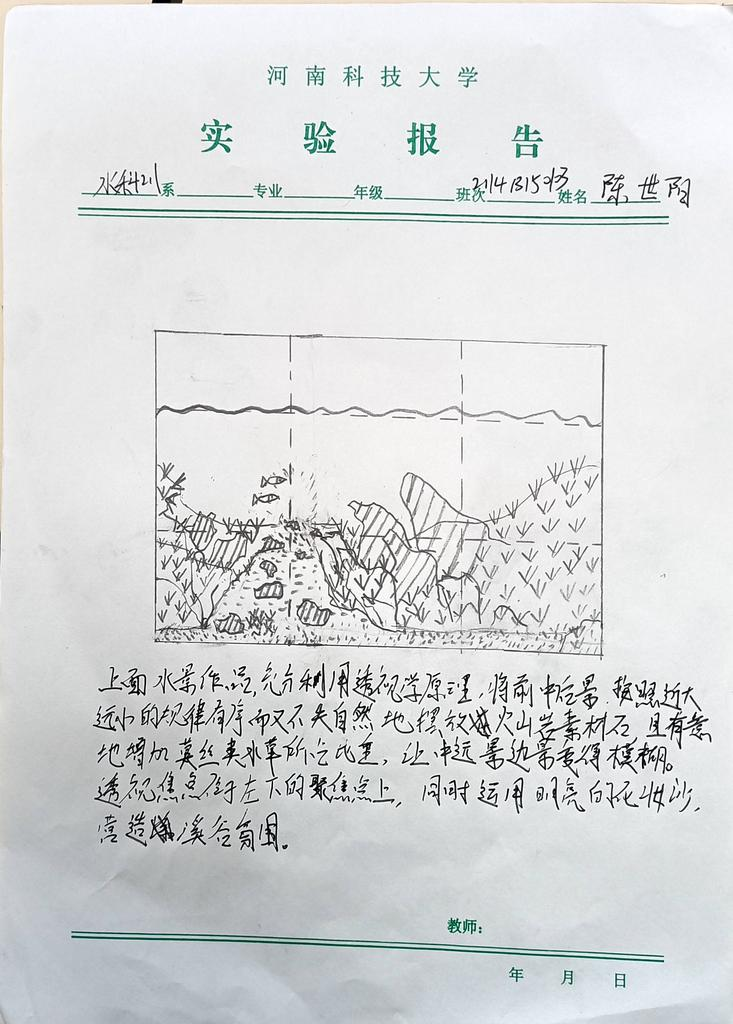 河南科技大学
实验报告
水科211系 专业 年级 班次 姓名 陈世阳
上面水景作品,充分利用透视学原理,将前中后景,按照近大
远小的规律有序而又不失自然地摆放火山岩素材石 且有意
地增加莫丝类水草所占比重,让中远景边景变得模糊。
透视焦点衔于左下的聚焦点上,同时运用明亮的化妆沙,
营造溪谷氛围。
教师:
年 月 日